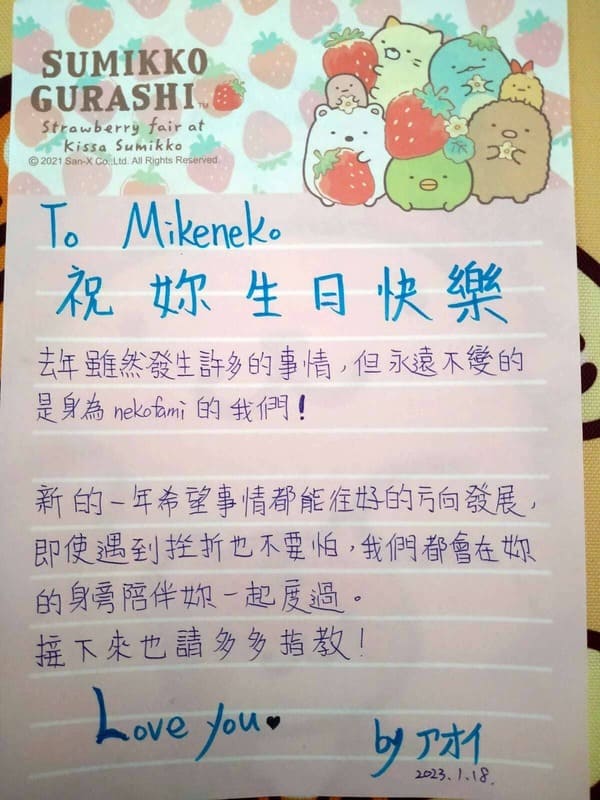 SUMIKKO
GURASHI™
Strawberry fair at
Kissa Sumikko
© 2021 San-X Co., Ltd. All Rights Reserved.
To Mikeneko
祝妳生日快樂
去年雖然發生許多的事情,但永遠不變的
是身為nekofami的我們!
新的一年希望事情都能往好的方向發展,
即使遇到挫折也不要怕,我們都會在妳
的身旁陪伴妳一起度過。
接下來也請多多指教!
Love you♥
by アオイ
2023.1.18.